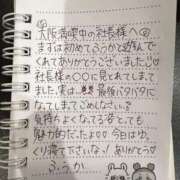 大阪満喫中の社長様へ♡
まずは初めてふうかと遊んで
くれてありがとうございました
社長様の〇〇に見とれてしまし
た。実は、最後バタバタに
なってしまてごめんなさい?
気持ちよくてなる姿とても
魅力的だったよ♡♡ 今日はゆっ
くり寝て下さいな! ありがとう
ふうか